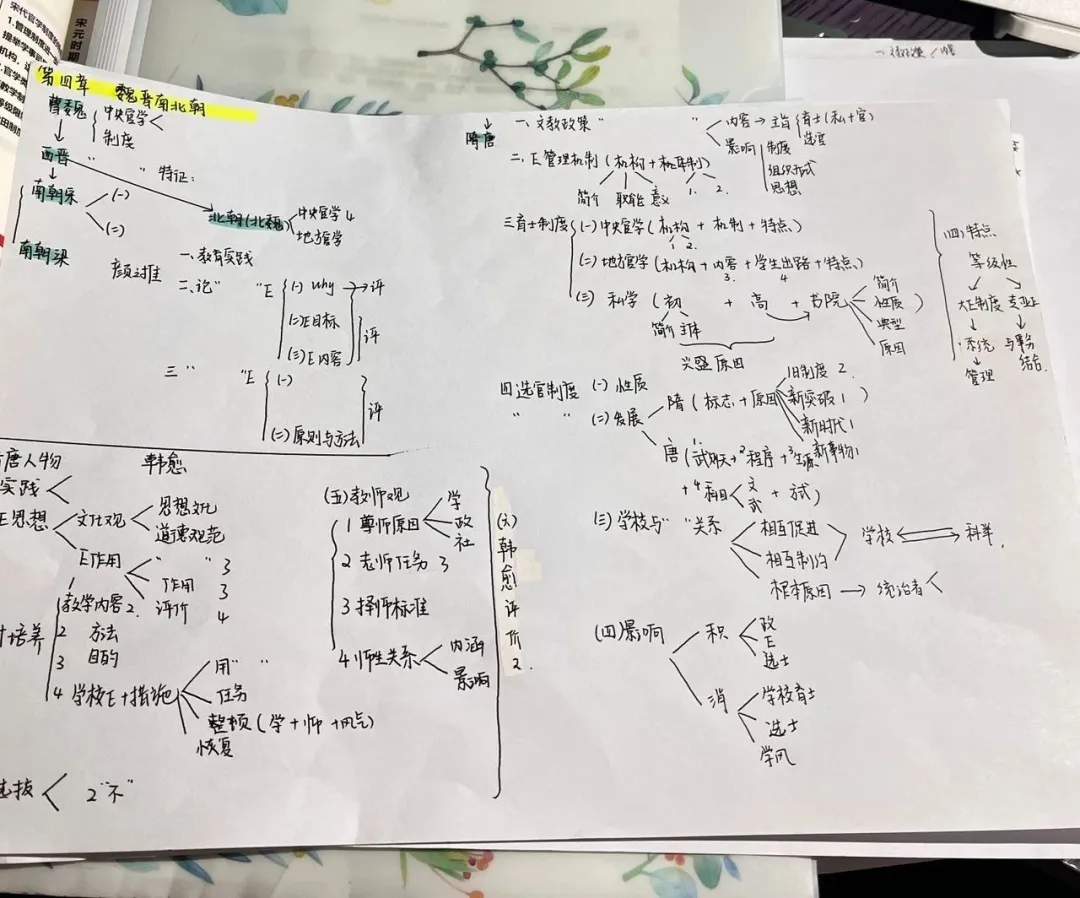 宋代官学制度
1.管理制度进一
提举学事司
宋元时期
第四章 魏晋南北朝
曹魏 中央官学
制度
西晋 " " 特征:
南朝宋 (一)
(二)
北朝(北魏) 中央官学 4
地方官学
南朝梁
颜之推
一、教育实践
二、论" "E (一) why → 评
(二)E目标
(三)E内容 评
三 " "E (一)
(二)原则与方法 评
唐人物 韩愈
实践
E思想 文化观 思想文化
道德规范
E作用 " " 3
作用 3
评价 4
培养
1 教学内容 2.
2 方法
3 目的
4 学校E+措施 用" "
任务
整顿(学+师+风气)
恢复
选拔 2"不"
(五)教师观
1 尊师原因 学
政
社
2 老师任务 3
3 择师标准
4 师生关系 内涵
影响
(六)韩愈评价2.
隋唐
一、文教政策 " 内容 → 主旨 育士(私+官)
选官
影响 制度
组织形式
思想
二、E管理机制(机构+机制)
简介 职能 意义 1. 2.
三育士制度 (一)中央官学(机构+机制+特点)
1 2.
(二)地方官学(机构+内容+学生出路+特点)
3. 4
(三)私学(初 + 高 + 书院)
简介 主体
简介
性质
典型
原因
兴盛原因
(四)特点
等级性
大E制度 专业上
系统 与事务
管理 结合
四选官制度 (一)性质
" " (二)发展 隋(标志+原因)
旧制度 2.
新突破 1
新时代 1
新事物 1
唐(1武则天+2程序+3生源
+4科目 文
武 +方式)
(三)学校与" "关系 相互促进
相互制约
学校 科举.
根本原因 → 统治者
(四)影响 积 政
E
选士
消 学校育士
选士
学风